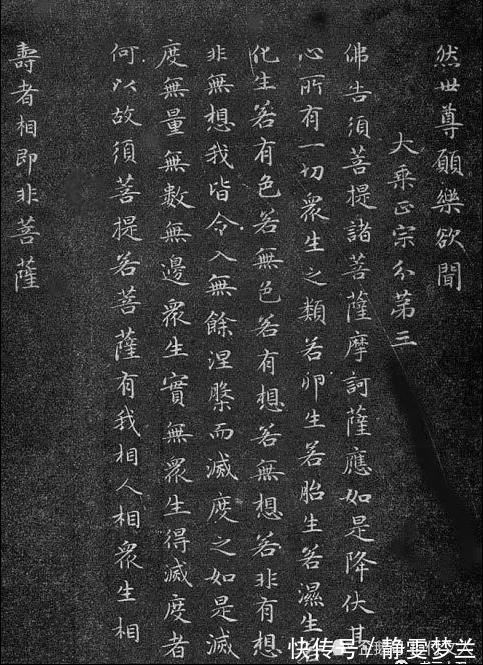 然世尊願樂欲聞
大乘正宗分第三
佛告須菩提諸菩薩摩訶薩應如是降伏其
心所有一切衆生之類若卵生若胎生若濕生若
化生若有色若無色若有想若無想若非有想
非無想我皆令入無餘涅槃而滅度之如是滅
度無量無數無邊衆生實無衆生得滅度者
何以故須菩提若菩薩有我相人相衆生相
壽者相即非菩薩
快传号/静雯梦兰